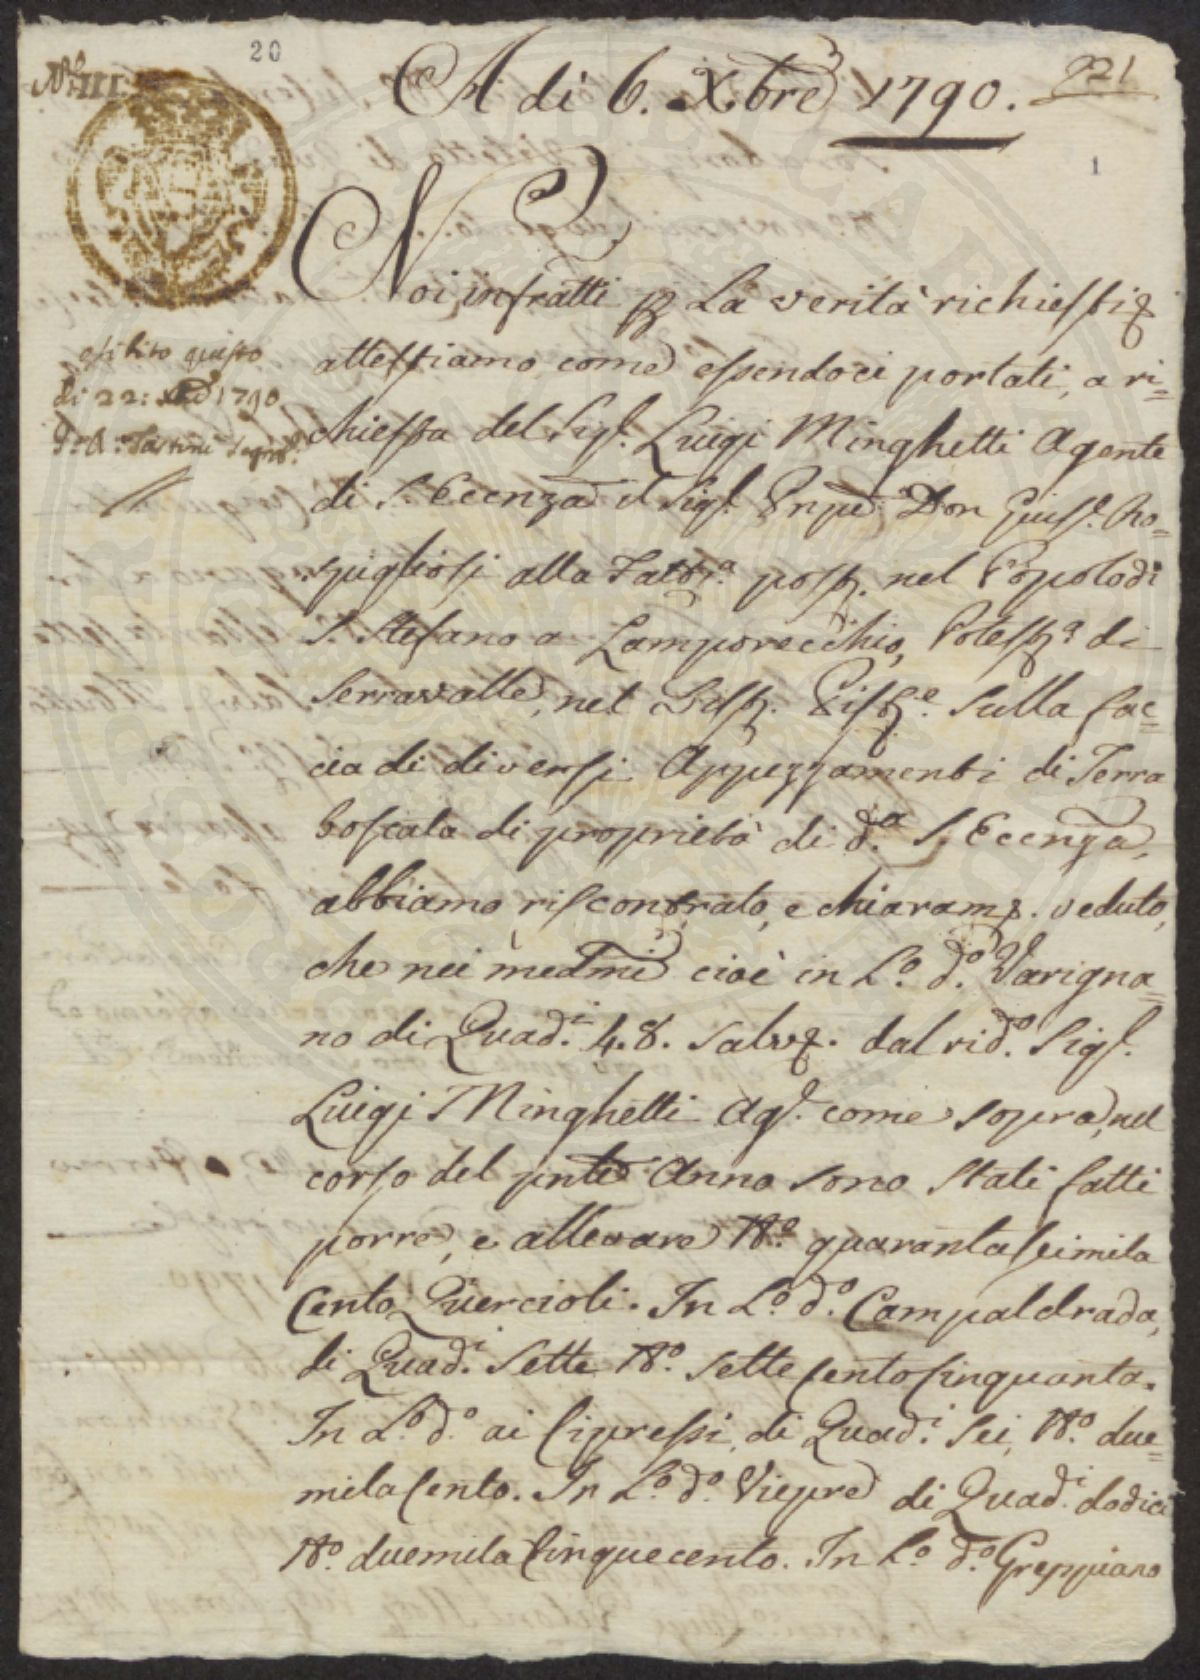 20
N.º III
A di 6. Xbre 1790.
221
1
Noi infratti p la verità richiesti
attestiamo come essendoci portati, a ri=
chiesta del Sig.r Luigi Minghetti Agente
di S. Eccnza il Sig.r Don Guis.e Ro=
spigliosi alla Fatt.a post. nel Popolo di
S. Stefano a Lamporecchio, Potest.a di
Serravalle, nel Dist. Pist.e sulla fac=
cia di diversi Appezzamenti di Terra
boscata di proprietà di d.a S. Eccnza,
abbiamo riscontrato, e chiaram. veduto,
che nei medmi cioè in L.o d.o Varigna=
no di Quad.i 48. salv. dal rid.o Sig.r
Luigi Minghetti Ag.e come sopra, nel
corso del pnte Anno sono stati fatti
porre, e allevare N.o quarantaseimila
cento Quercioli. In L.o d.o Campaldrada,
di Quad.i Sette N.o settecentocinquanta.
In L.o d.o ai Cipressi, di Quad.i Sei, N.o due=
milacento. In L.o d.o Viepre di Quad.i dodici
N.o duemilacinquecento. In L.o d.o Greppiano
esibito questo
di 22: Xbre 1790